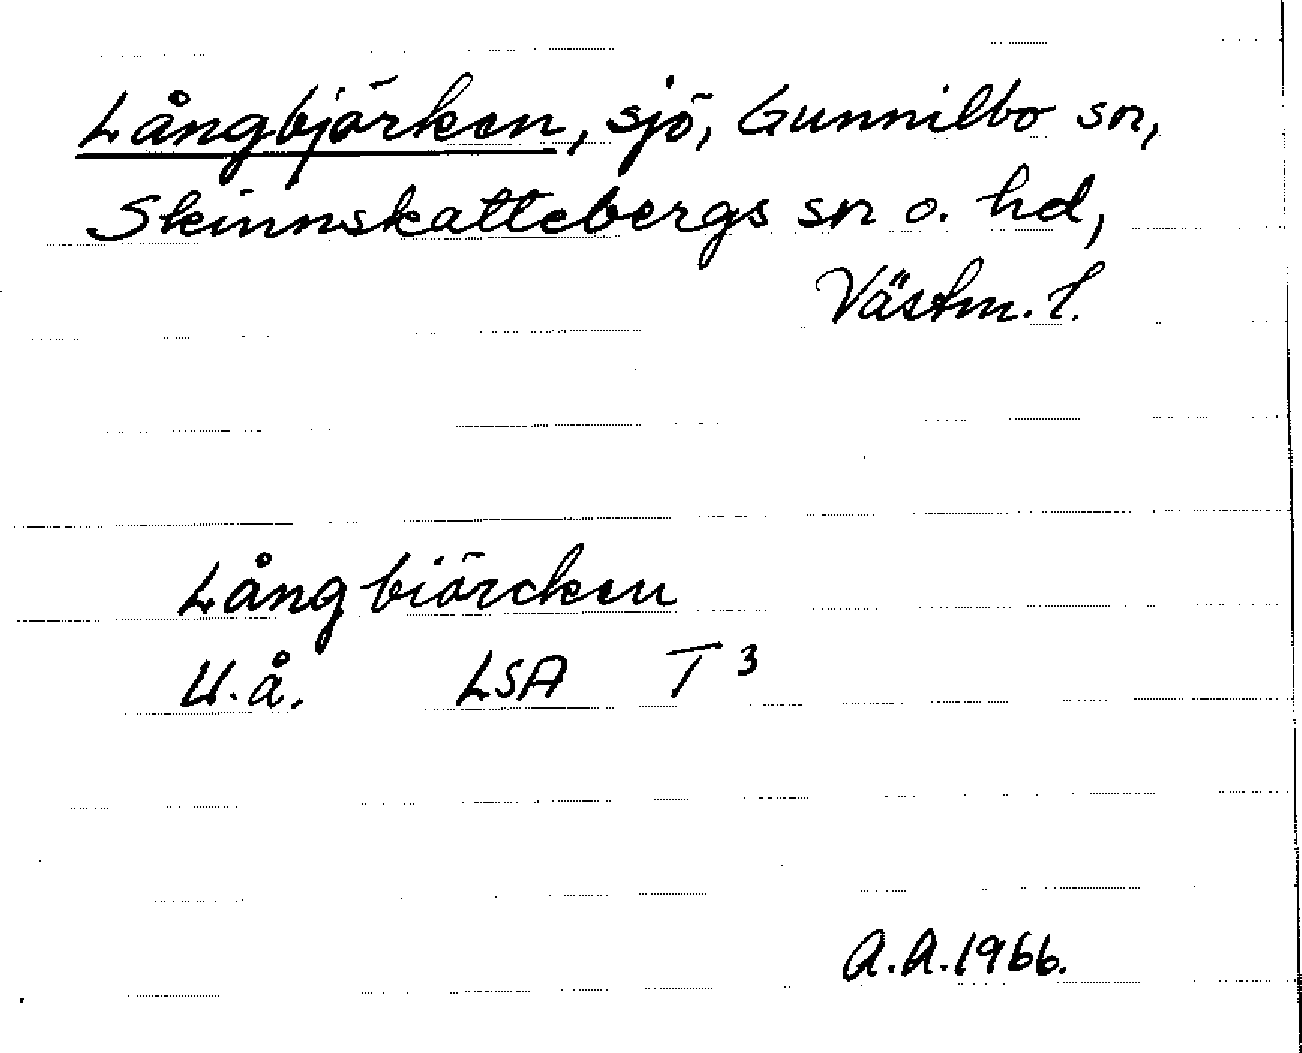 Långbjörken, sjö, Gunnilbo sn,
Skinnskattebergs sn o. hd,
Västm. l.
Långbiörcken
U.å. LSA T 3
A.A.1966.